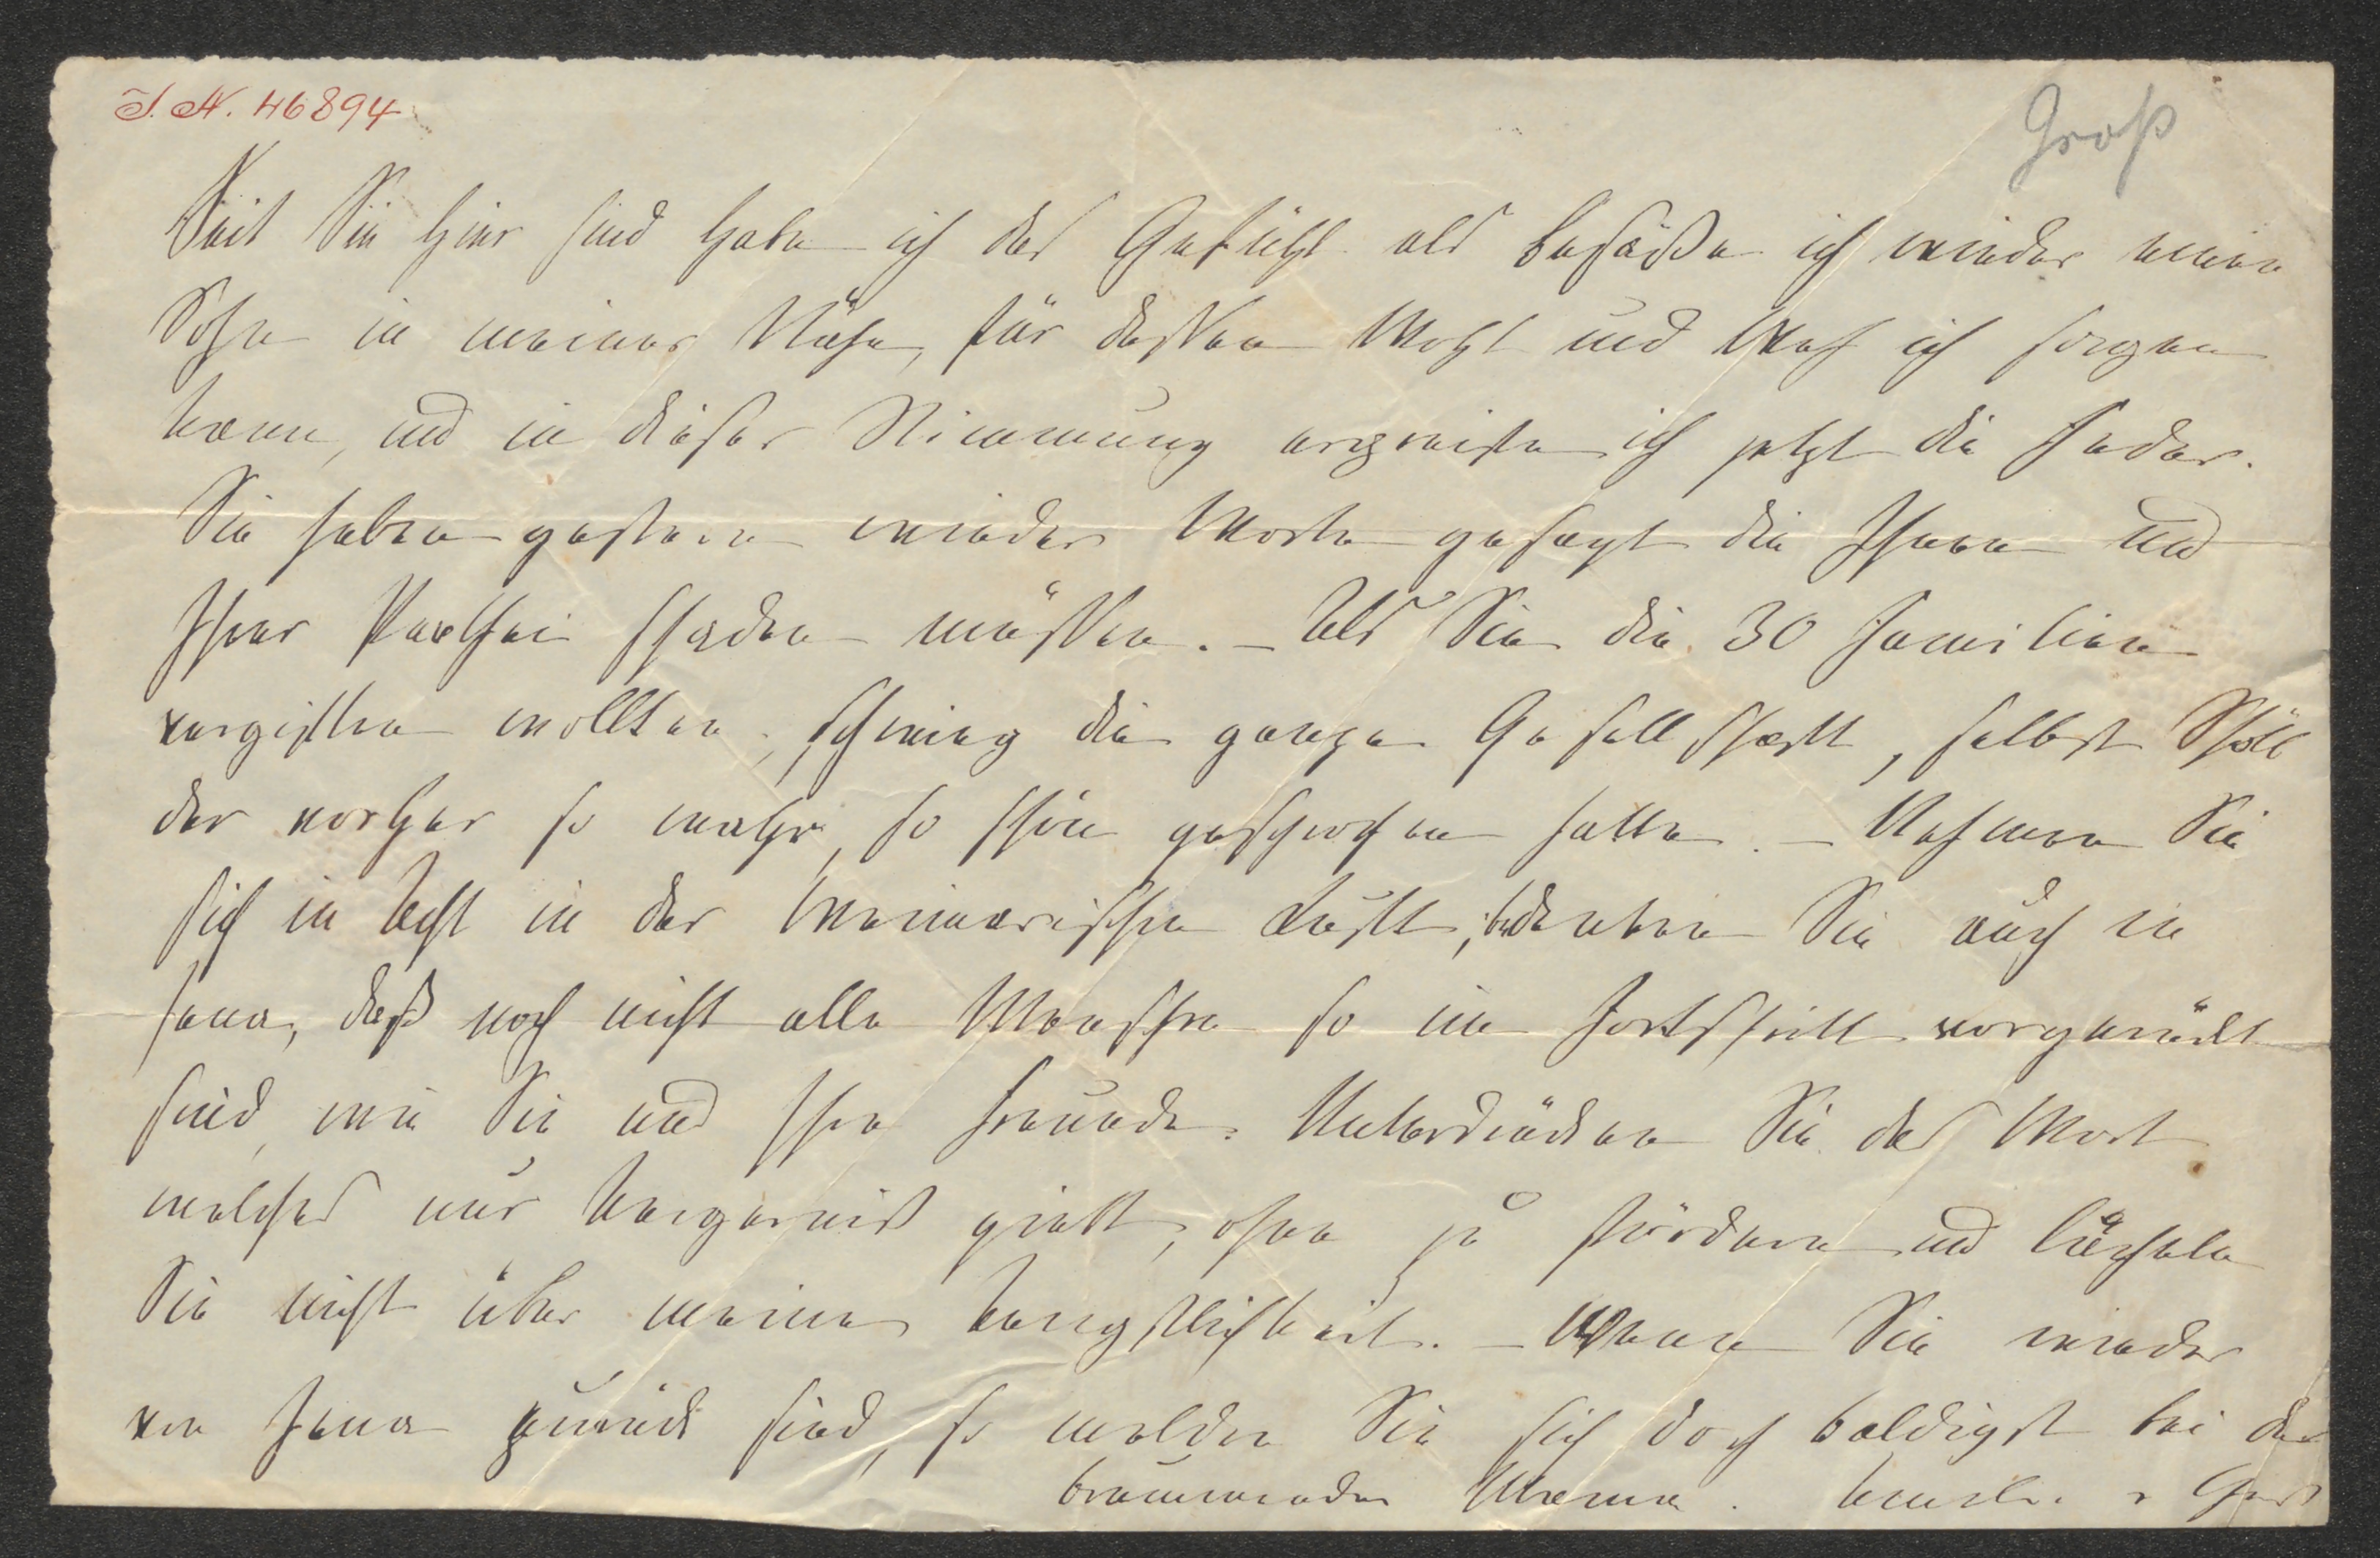 I. N. 46894
Groß
Seit Sie hier sind habe ich das Gefühl als besäße ich wieder einen
Sohn in meiner Nähe, für dessen Wohl und Weh ich sorgen
kann, und in dieser Stimmung ergreife ich jetzt die Feder.
Sie haben gestern wieder Worte gesagt die Ihnen und
Ihrer Parthei schaden müssen. – Als Sie die 30 Familien
vergiften wollten, schwieg die ganze Gesellschaft, selbst Schöll
der vorher so wahr, so schön gesprochen hatte. – Nehmen Sie
sich in Acht in der Weimarischen Luft, bedenken Sie auch in
Jena, daß noch nicht alle Menschen so im Fortschritt vorgerückt
sind, wie Sie und Ihre Freunde. Unterdrücken Sie das Wort
welches nur Aergerniß giebt, ohne zu fördern und lächeln
Sie nicht über meine Aengstlichkeit. – Wenn Sie wieder
von Jena zurück sind, so melden Sie sich doch baldigst bei der
brummenden Mama. Amalie Groß